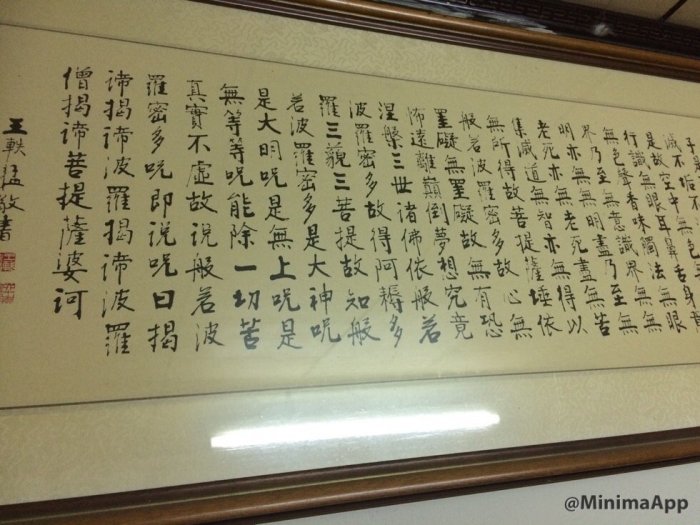 滅不垢不
是故空中無色
行識無眼耳鼻舌身意
無色聲香味觸法無眼
界乃至無意識界無無
明亦無無明盡乃至無
老死亦無老死盡無苦
集滅道無智亦無得以
無所得故菩提薩埵依
般若波羅密多故心無
罣礙無罣礙故無有恐
怖遠離顛倒夢想究竟
涅槃三世諸佛依般若
波羅密多故得阿耨多
羅三藐三菩提故知般
若波羅密多是大神咒
是大明咒是無上咒是
無等等咒能除一切苦
真實不虛故說般若波
羅密多咒即說咒曰揭
諦揭諦波羅揭諦波羅
僧揭諦菩提薩婆訶
王軼猛敬書
@MinimaApp